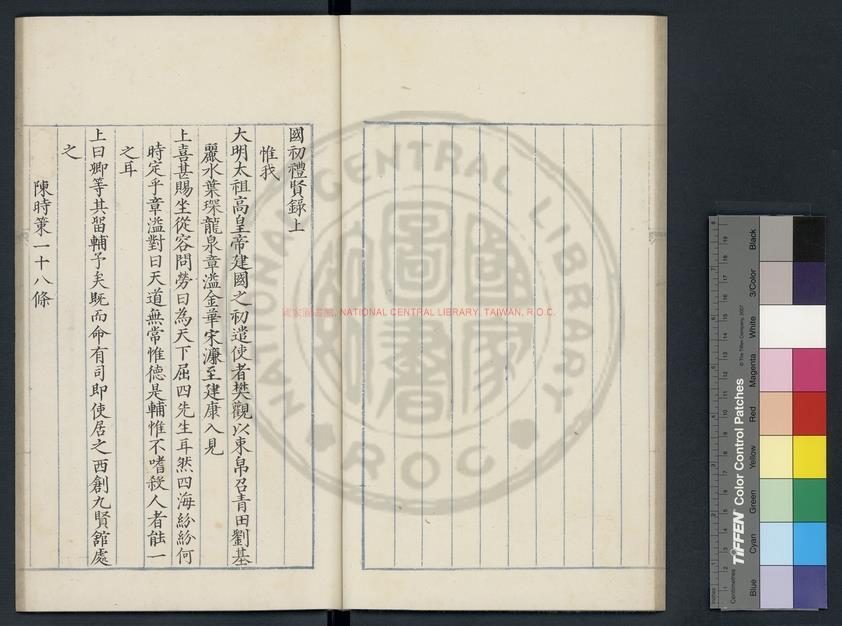 國初禮賢錄上
惟我
大明太祖高皇帝建國之初遣使者樊觀以束帛召青田劉基
麗水葉琛龍泉章溢金華宋濂至建康入見
上喜甚賜坐從容問勞曰為天下屈四先生耳然四海紛紛何
時定乎章溢對曰天道無常惟德是輔惟不嗜殺人者能一
之耳
上曰卿等其留輔予矣既而命有司即使居之西創九賢館處
之
陳時策一十八條
NATIONAL CENTRAL LIBRARY
圖書
國家
ROC
國家圖書館, NATIONAL CENTRAL LIBRARY, TAIWAN, R.O.C.
TIFFEN Color Control Patches
© The Tiffen Company, 2007
Centimetres
Blue
Cyan
Green
Yellow
Red
Magenta
White
3/Color
Black